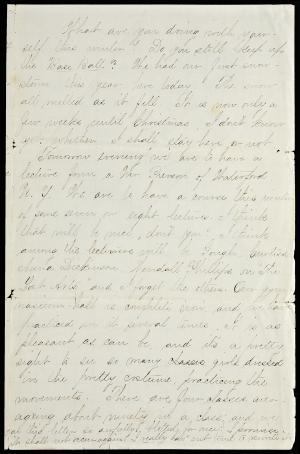 What are you doing with your-
self this winter? Do you still keep up
the Base Ball? We had our first snow-
storm this year here today. The snow
all melted as it fell. It is now only a
few weeks until Christmas. I don't know
yet whether I shall stay here or not.
Tomorrow evening we are to have a
lecture from a Mr. of Waterford
N. Y. We are to have a course this winter
of some seven or eight lectures. I think
that will be nice, don't you? I think
among the lecturers will be Gough, Curtis,
Anna Dickinson, Wendell Phillips on The
Lost Arts, and I forget the others. Our gym-
nasium Hall is complete now and we have
practiced in it several times. It is as
pleasant as can be and it's a pretty
sight to see so many classes girls dressed
in the pretty costume, practicing the
movements. There are four classes aver-
aging about ninety in a class, and we
letter so blotted, for once I promise
It shall not occur again. I really have not time to rewrite it